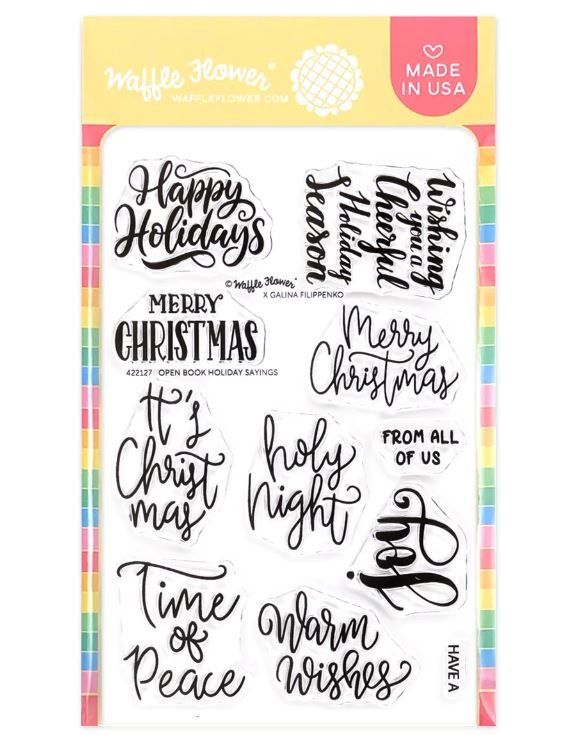 Waffle Flower®
WAFFLEFLOWER.COM
MADE
IN USA
Happy
Holidays
Wishing
you a
Cheerful
Holiday
Season
© Waffle Flower®
X GALINA FILIPPENKO
MERRY
CHRISTMAS
422127 OPEN BOOK HOLIDAY SAYINGS
Merry
Christmas
It's
Christ
mas
holy
night
FROM ALL
OF US
joy!
Time
of
Peace
Warm
Wishes
HAVE A